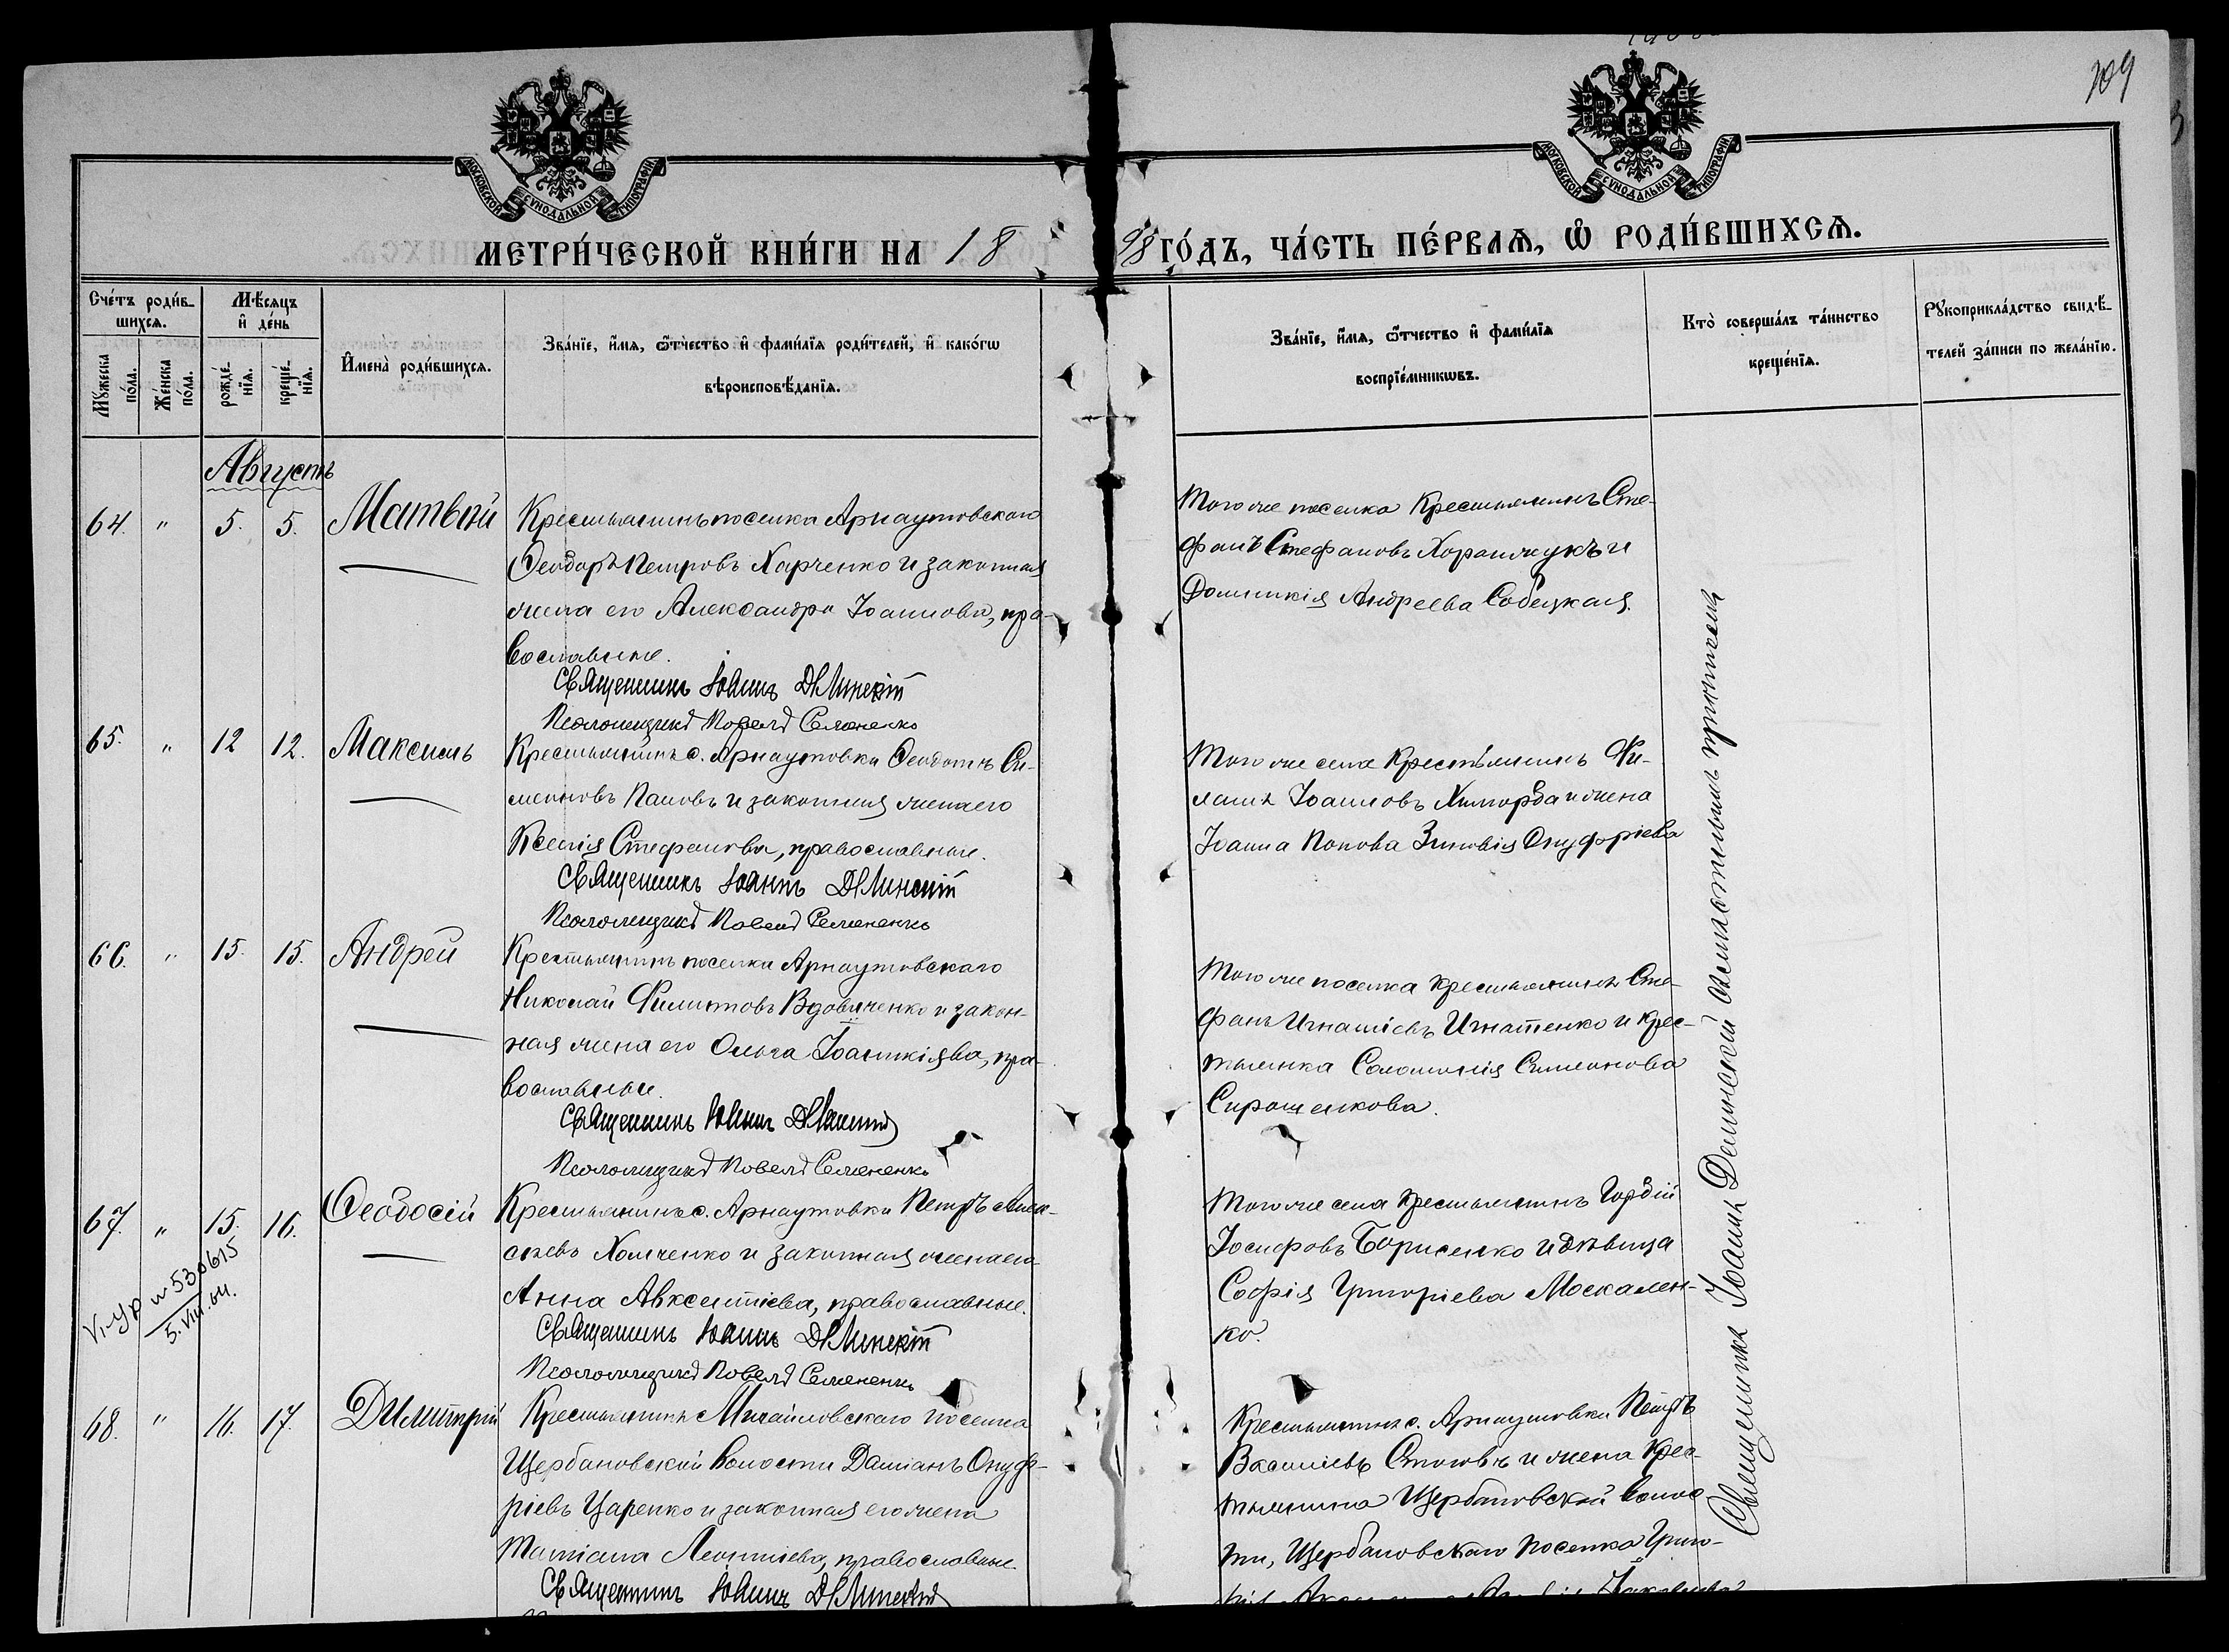 109
МОСКОВСКОЙ СУНОДАЛЬНОЙ ТИПОГРАФІИ
МОСКОВСКОЙ СУНОДАЛЬНОЙ ТИПОГРАФІИ
МЕТРИ́ЧЕСКОЙ КНИ́ГИ НА 18
98 ГО́ДЪ, ЧА́СТЬ ПЕ́РВАѦ, Ѽ РОДИ́ВШИХСѦ.
Сче́тъ роди́в-
шихсѧ.
Мꙋ́жеска по́ла.
Же́нска по́ла.
Мѣ́сѧцъ
и҆ де́нь
рожде́-
нїѧ.
креще́-
нїѧ.
И҆мена̀ роди́вшихсѧ.
Зва́нїе, и҆́мѧ, ѻ҆́тчество и҆ фами́лїѧ роди́телей, и҆ како́гѡ
вѣроисповѣ́данїѧ.
Зва́нїе, и҆́мѧ, ѻ҆́тчество и҆ фами́лїѧ
воспрїе́мникѡвъ.
Кто̀ соверша́лъ та́инство
креще́нїѧ.
Рꙋкоприкла́дство свидѣ́-
телей за́писи по жела́нїю.
Августъ
64. " 5. 5. Матвѣй
Крестьянинъ поселка Арнаутовскаго
Ѳеодоръ Петровъ Харченко и законная
жена его Александра Іоаннова, пра-
вославные.
Священникъ Іоаннъ Д
Псаломщикъ Павелъ Семененко
Того же поселка крестьянинъ Сте-
фанъ Стефановъ и
Домникія Андреева Собецкая.
65. " 12 12. Максимъ
Крестьянинъ с. Арнаутовки Ѳеодотъ Си-
меоновъ Поповъ и законная жена его
Ксенія Стефанова, православные.
Священникъ Іоаннъ
Псаломщикъ Павелъ Семененко
Того же села крестьянинъ Фи-
липъ Іоанновъ и жена
Іоанна Попова Зиновія Онуфріева
66. " 15. 15. Андрей
Крестьянинъ поселка Арнаутовскаго
Николай Филиповъ Вдовиченко и закон-
ная жена его Ольга Іоанникіева, пра-
вославные.
Священникъ Іоаннъ
Псаломщикъ Павелъ Семененко
Того же поселка крестьянинъ Сте-
фанъ Игнатіевъ Игнатенко и крес-
тьянка Соломонія Симеонова
67. " 15. 16. Ѳеодосій
Крестьянинъ с. Арнаутовки Петръ Алек-
сѣевъ Хомченко и законная жена его
Анна Авксентіева, православные.
Священникъ Іоаннъ
Псаломщикъ Павелъ Семененко
Того же села крестьянинъ Гордій
Іосифовъ Борисенко и дѣвица
Софія Григоріева Москален-
ко.
530615
5.VIII.04.
68. " 16. 17. Димитрій
Крестьянинъ Михайловскаго поселка
Щербановской волости Даміанъ Онуф-
ріевъ Царенко и законная его жена
Татіана Леонтіева, православные.
Священникъ Іоаннъ
Крестьянинъ с. Арнаутовки Петръ
Василіевъ и жена крес-
тьянина Щербановской волос-
ти, Щербановскаго поселка Григо-
Яковлева
Священникъ Іоаннъ